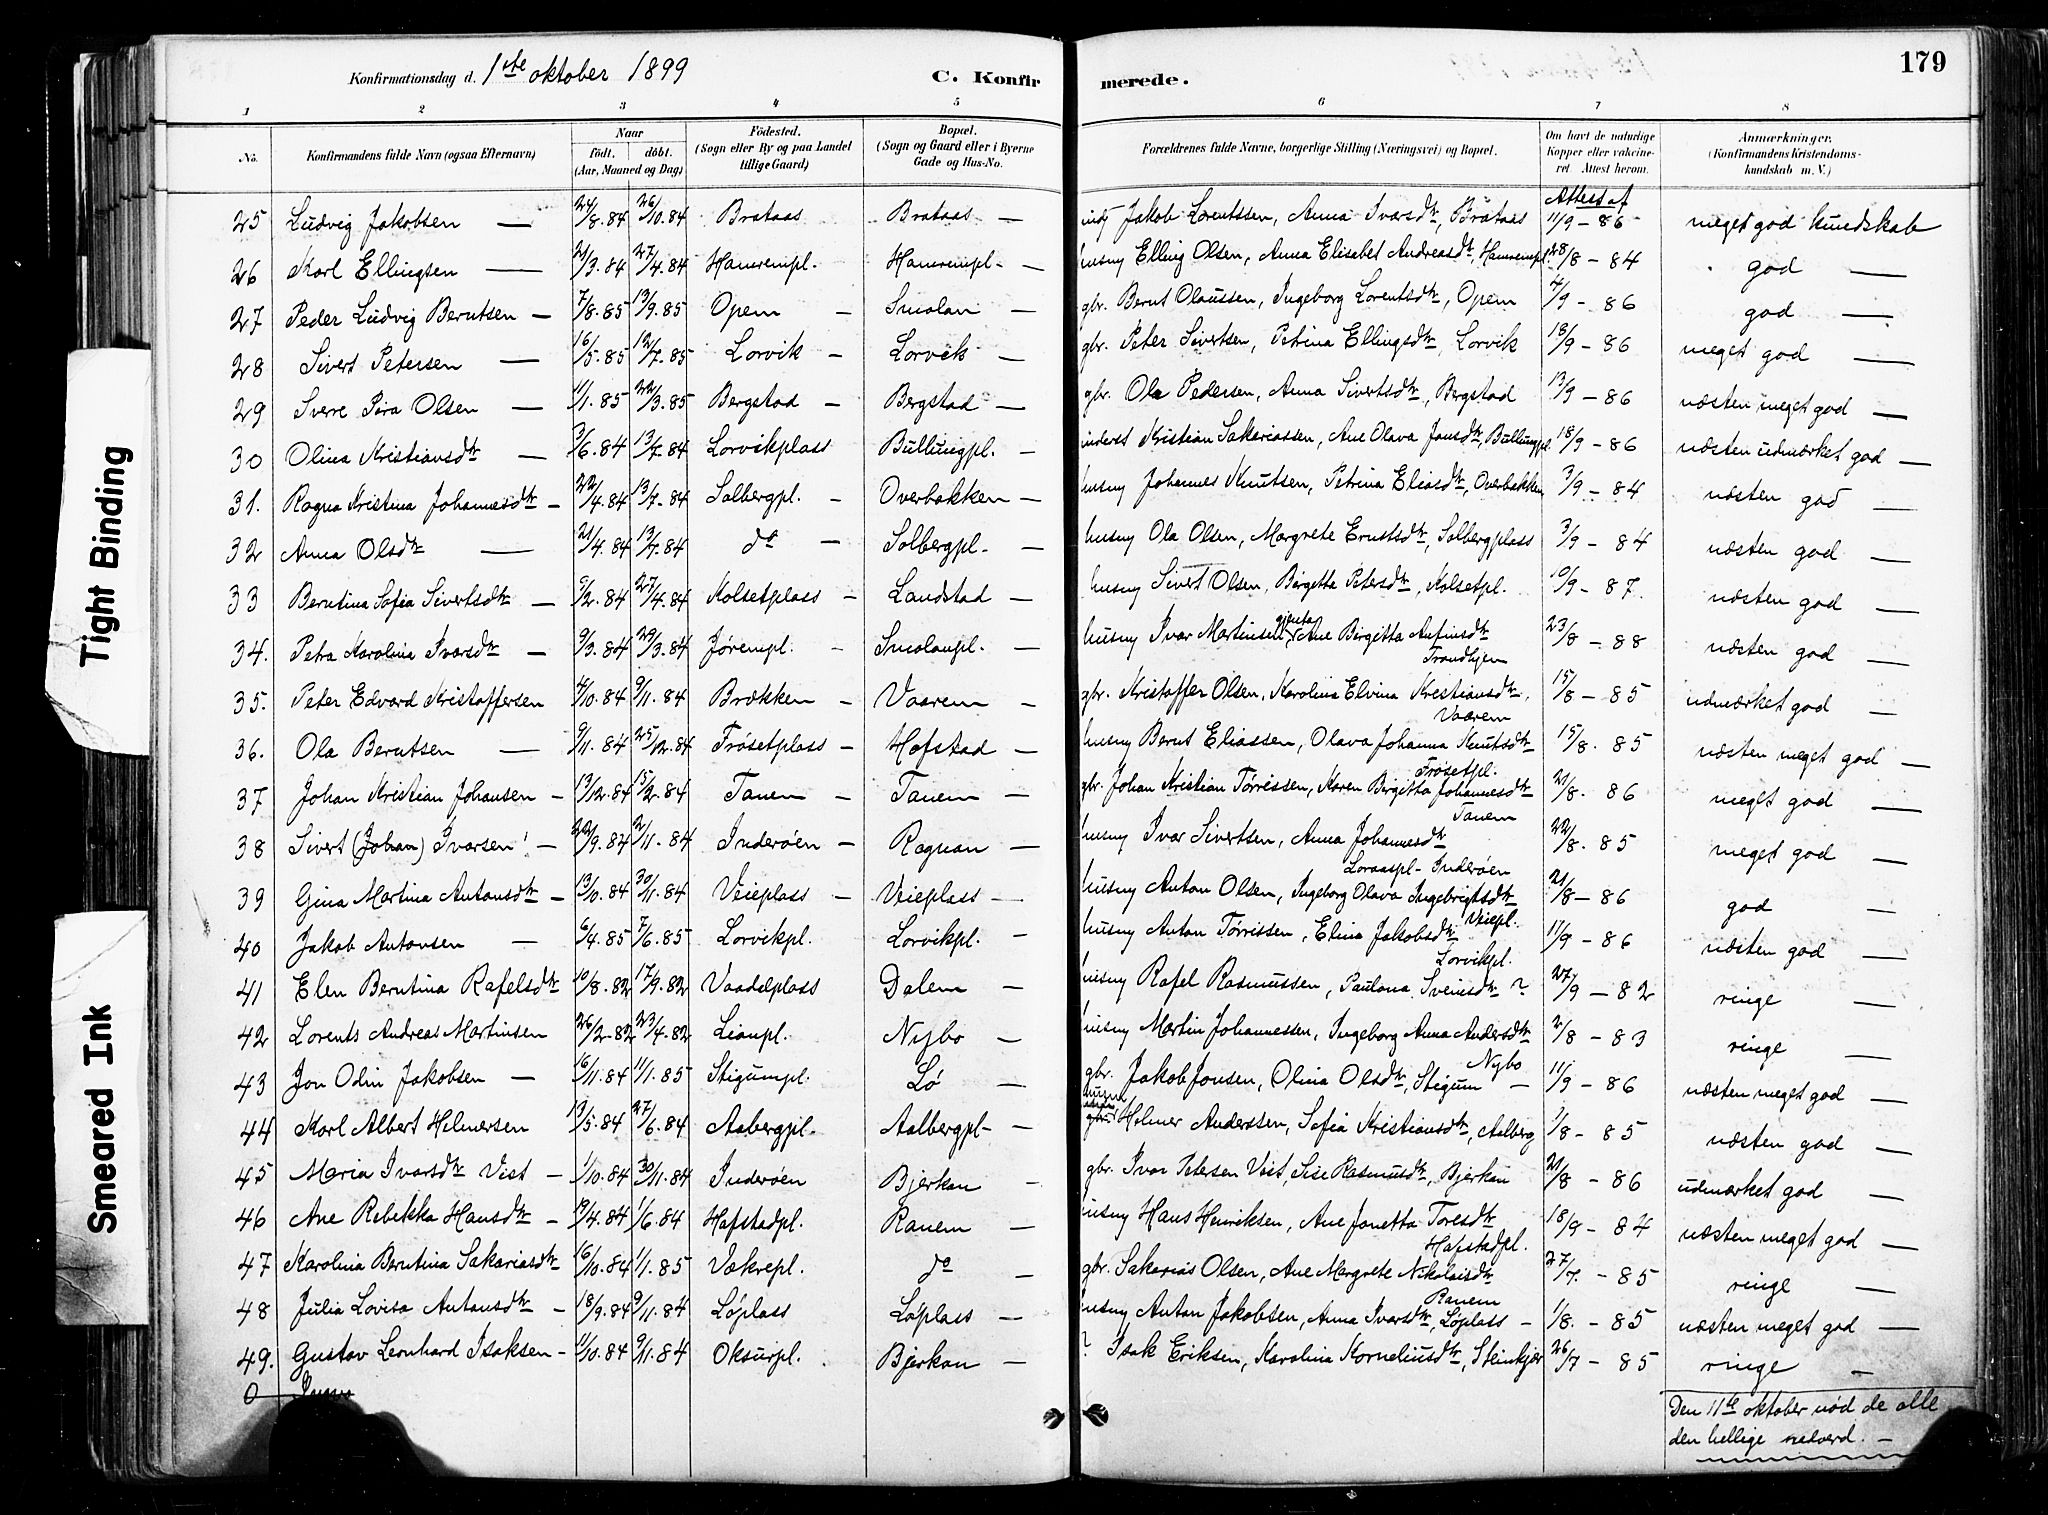 179
Konfirmationsdag d. 1ste oktober 1899 C. Konfirmerede.
1 2 3 4 5 6 7 8
No. Konfirmandens fulde Navn (ogsaa Efternavn) Naar født. døbt. (Aar, Maaned og Dag) Fødested. (Sogn eller By og paa Landet tillige Gaard) Bopæl. (Sogn og Gaard eller i Byerne Gade og Hus-No. Forældrenes fulde Navne, borgerlige Stilling (Næringsvei) og Bopæl. Om havt de naturlige Kopper eller vakcineret Attest herom. Anmærkninger. (Konfirmandens Kristendomskundskab m. V.)
Attest af
25 Ludvig Jakobsen — 24/8.84 26/10.84 Brataas Brataas — Jakob Lorentssen, Anna Ivarsdtr, Brataas 11/9 - 86 meget god kundskab
26 Karl Ellingsen — 21/3.84 27/4.84 Hamrempl. Hamrempl. — husmg Elling Olsen, Anna Elisabet Andreasdtr, Hamrempl 28/8 - 84 god —
27 Peder Ludvig Berntsen — 7/8.85 13/9.85 Opem — Smolan — gbr. Bernt Olaussen, Ingeborg Lorentsdtr, Opem 4/9 - 86 god —
28 Sivert Petersen — 16/5.85 12/7.85 Lorvik — Lorvik — gbr. Peter Sivertsen, Petrina Ellingsdtr, Lorvik 18/9 - 86 meget god —
29 Sverre Olsen — 11/1.85 22/3.85 Bergstad — Bergstad — gbr. Ola Pedersen, Anna Sivertsdtr, Bergstad 13/9 - 86 næsten meget god —
30 Olina Kristiansdtr — 3/6.84 13/7.84 Lorvikplass Bullungpl. — inderst Kristian Sakariassen, Ane Olava Jonsdtr, Bullungpl 18/9 - 86 næsten udmærket god —
31. Ragna Kristina Johannesdtr — 22/4.84 13/7.84 Solbergpl. — Overbakken — husmg Johannes Knutsen, Petrina Eliasdtr, Overbakken 3/9 - 84 næsten god —
32 Anna Olsdtr — 21/4.84 13/7.84 do — Solbergpl. — husmg Ola Olsen, Margrete Ernstsdtr, Solbergplass 3/9 - 84 næsten god —
33 Berntina Sofia Sivertsdtr — 5/2.84 27/4.84 Kolsetplass — Landstad — husmg Sivert Olsen, Birgitta Petersdtr, Kolsetpl. 10/9 - 87. næsten god —
34. Petra Karolina Ivarsdtr — 9/3.84 29/3.84 Jørempl. — Smolanpl. — husmg Ivar Martinsen, Ane Birgitta Anfinsdtr Trondhjem 23/8 - 88 næsten god —
35. Peter Edvard Kristoffersen 4/10.84 9/11.84 Brækken — Vaarem — gbr. Kristoffer Olsen, Karolina Elvina Kristiansdtr, Vaarem 15/8 - 85 udmærket god —
36. Ola Berntsen — 9/11.84 25/12.84 Frøsetplass — Hofstad — husmg Bernt Eliassen, Olava Johanna Knutsdtr Frøsetpl. 15/8. 85 næsten meget god —
37 Johan Kristian Johansen — 13/12.84 15/2.84 Tanem — Tanem — gbr. Johan Kristian Tørrissen, Karen Birgitta Johannesdtr Tanem 21/8. 86 meget god —
38 Sivert (Johan) Ivarsen — 22/9.84 2/11.84 Inderøen — Ragnan — husmg Ivar Sivertsen, Anna Johannesdtr Loraaspl. Inderøen 22/8. 85 meget god —
39 Gina Martina Antonsdtr — 13/10.84 30/11.84 Veieplass — Veieplass — husmg Anton Olsen, Ingeborg Olava Ingebrigtsdtr Veiepl. 21/8 - 86 god —
40 Jakob Antonsen — 6/4.85 7/6.85 Lorvikpl. Lorvikpl. — husmg Anton Tørrissen, Elina Jakobsdtr Lorvikpl. 17/9 - 86 næsten god —
41 Elen Berntina Rafelsdtr 10/8.82 17/9.82 Vaadalplass Dalem — husmg Rafel Rasmussen, Paulona Svensdtr ? 27/9 - 82 ringe —
42 Lorents Andreas Martinsen 26/2.82 23/4.82 Lianpl. Nybo — husmg Martin Johannessen, Ingeborg Anna Andersdtr Nybo 2/8 - 83 ringe —
43 Jon Odin Jakobsen — 16/11.84 11/1.85 Stigumpl. Lø — gbr. Jakob Jonsen, Olina Olsdtr, Stigum — 11/9 - 86 næsten meget god —
44 Karl Albert Helmersen 13/5.84 27/6.84 Aabergpl. Aalbergpl. — Helmer Anderssen, Sofia Kristiansdtr, Aalberg 1/8 - 85 næsten god —
45 Maria Ivarsdtr Vist — 1/10.84 30/11.84 Inderøen Bjerkan — gbr. Ivar Petersen Vist, Sise Rasmusdtr, Bjerkan 21/8 - 86 udmærket god —
46 Ane Rebekka Hansdtr — 19/4.84 1/6.84 Hafstadpl. Ranem — husmg Hans Henriksen, Ane Jonetta Toresdtr Hafstadpl. 18/9 - 84 næsten meget god —
47 Karolina Berntina Sakariasdtr 16/10.84 1/1.85 Vækrepl. do — gbr. Sakarias Olsen, Ane Margrete Nikolaisdtr Ranem 27/7. - 85 ringe —
48 Julia Lovisa Antonsdtr — 18/9.84 9/11.84 Løplass Løplass — husmg Anton Jakobsen, Anna Ivarsdtr, Løplass — 1/8. - 85 næsten meget god —
49. Gustav Leonhard Isaksen — 11/10.84 9/11.84 Oksurpl. Bjerkan — ? Isak Eriksen, Karolina Korneliusdtr, Stenkjær 26/7 - 85 ringe —
0
Den 11te oktober nød de alle
den hellige nadverd. —
Tight Binding
Smeared Ink